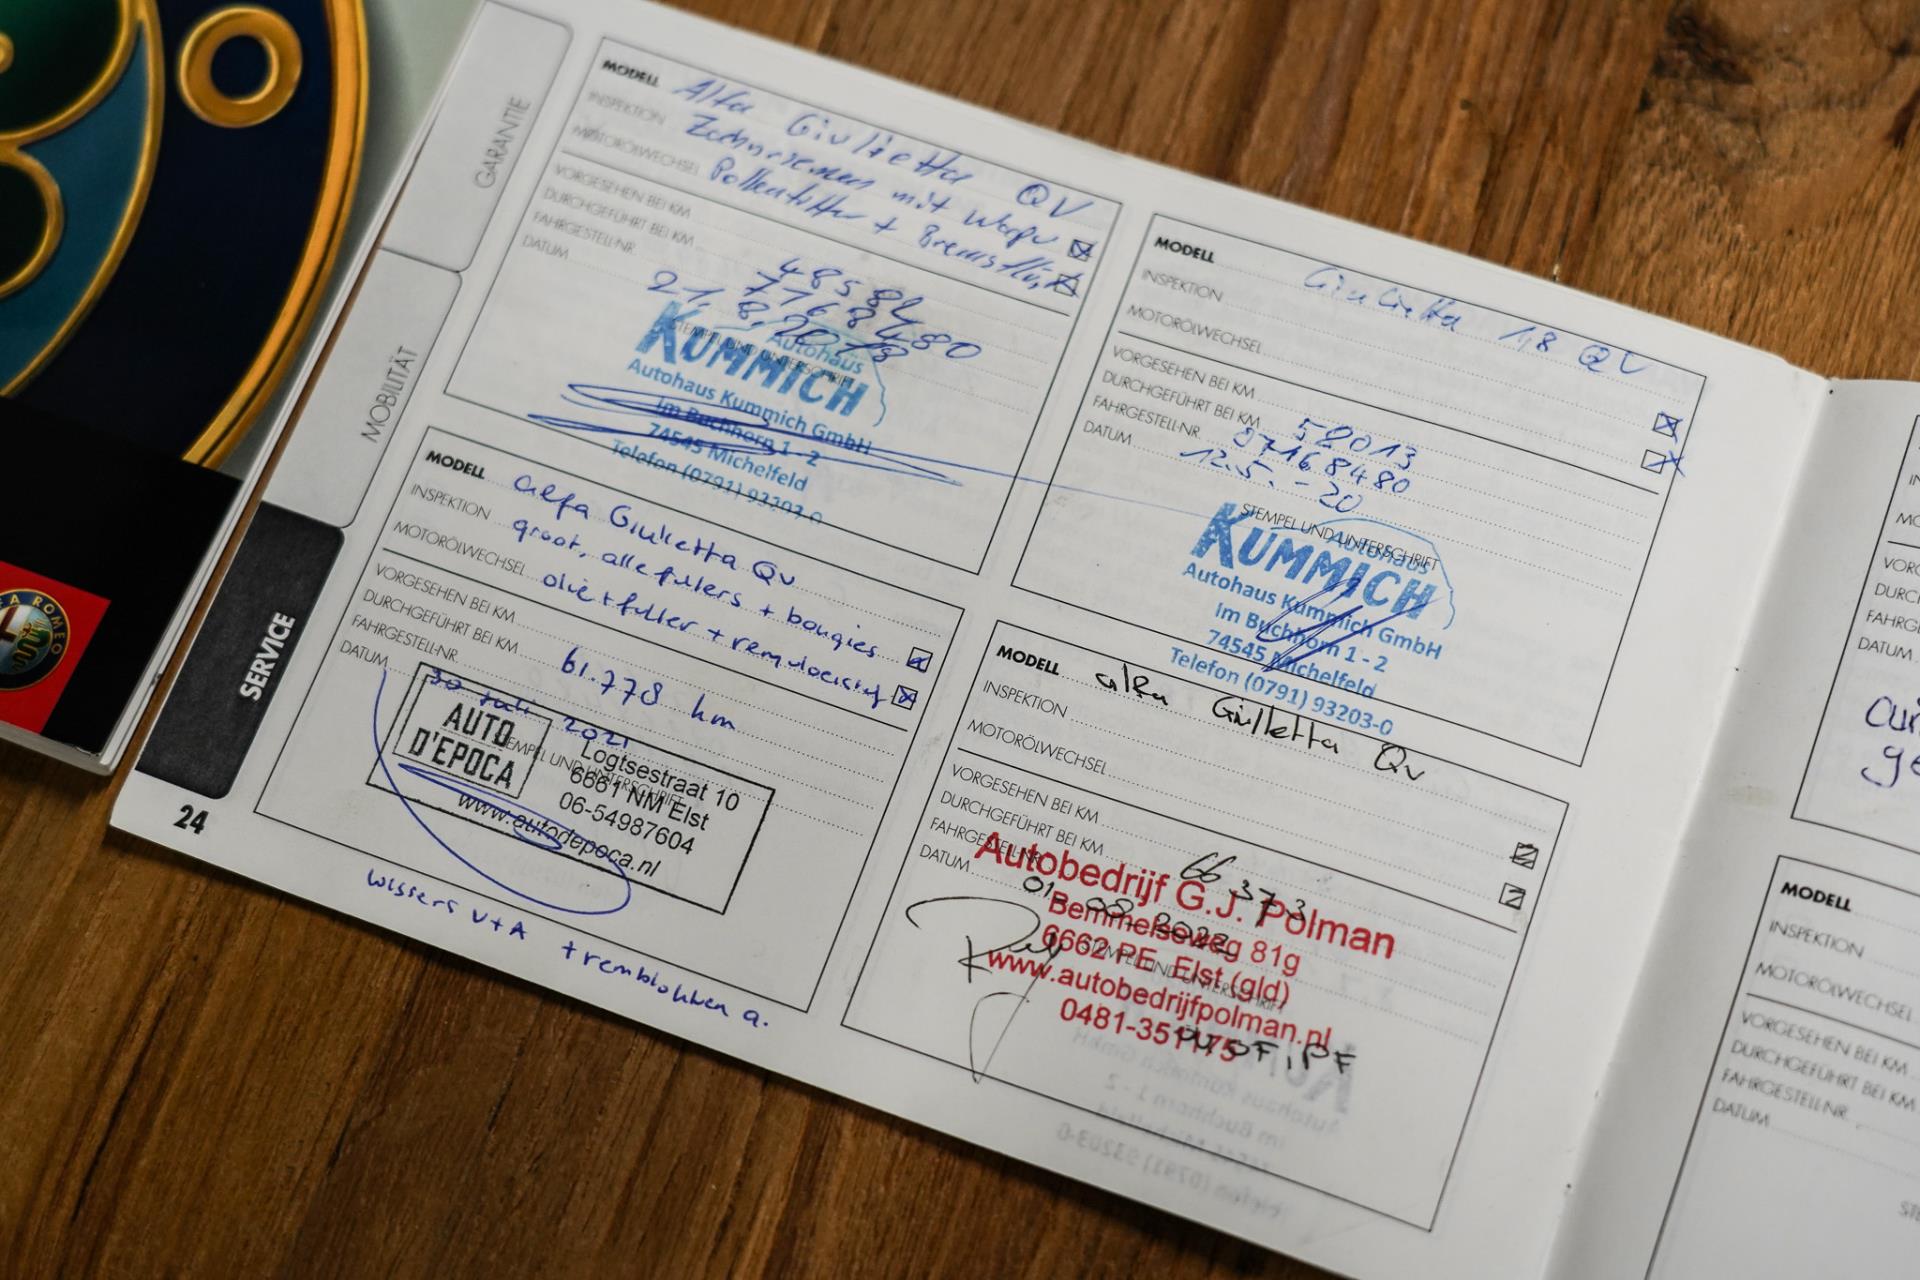 GARANTIE
MOBILITÄT
SERVICE
24
MODELL Alfa Giulietta QV
INSPEKTION Zahnriemen mit Wapu
MOTORÖLWECHSEL Pollenfilter + Bremsflü.
VORGESEHEN BEI KM
DURCHGEFÜHRT BEI KM 48584
FAHRGESTELL-NR. 77168480
DATUM 21.8.2019
STEMPEL UND UNTERSCHRIFT
Autohaus
KUMMICH
Autohaus Kummich GmbH
Im Buchhorn 1 - 2
74545 Michelfeld
Telefon (0791) 93203-0
MODELL Giulietta 1,8 QV
INSPEKTION
MOTORÖLWECHSEL
VORGESEHEN BEI KM
DURCHGEFÜHRT BEI KM 58013
FAHRGESTELL-NR. 87168480
DATUM 12.5.-20
STEMPEL UND UNTERSCHRIFT
Autohaus
KUMMICH
Autohaus Kummich GmbH
Im Buchhorn 1 - 2
74545 Michelfeld
Telefon (0791) 93203-0
MODELL alfa Giulietta Qv
INSPEKTION groot, alle filters + bougies
MOTORÖLWECHSEL olie + filter + remvloeistof
VORGESEHEN BEI KM
DURCHGEFÜHRT BEI KM 61.778 km
FAHRGESTELL-NR.
DATUM 30 Juli 2021
STEMPEL UND UNTERSCHRIFT
AUTO
D'EPOCA
Logtsestraat 10
6661 NM Elst
06-54987604
www.autodepoca.nl
wissers V+A + remblokken a.
MODELL alfa Giulietta Qv
INSPEKTION
MOTORÖLWECHSEL
VORGESEHEN BEI KM
DURCHGEFÜHRT BEI KM 66 373
FAHRGESTELL-NR.
DATUM 01 08 2022
STEMPEL UND UNTERSCHRIFT
Autobedrijf G.J. Polman
Bemmelseweg 81g
6662 PE Elst (gld)
www.autobedrijfpolman.nl
0481-351175
MODELL
INSPEKTION
MOTORÖLWECHSEL
VORGESEHEN BEI KM
DURCHGEFÜHRT BEI KM
FAHRGESTELL-NR.
DATUM